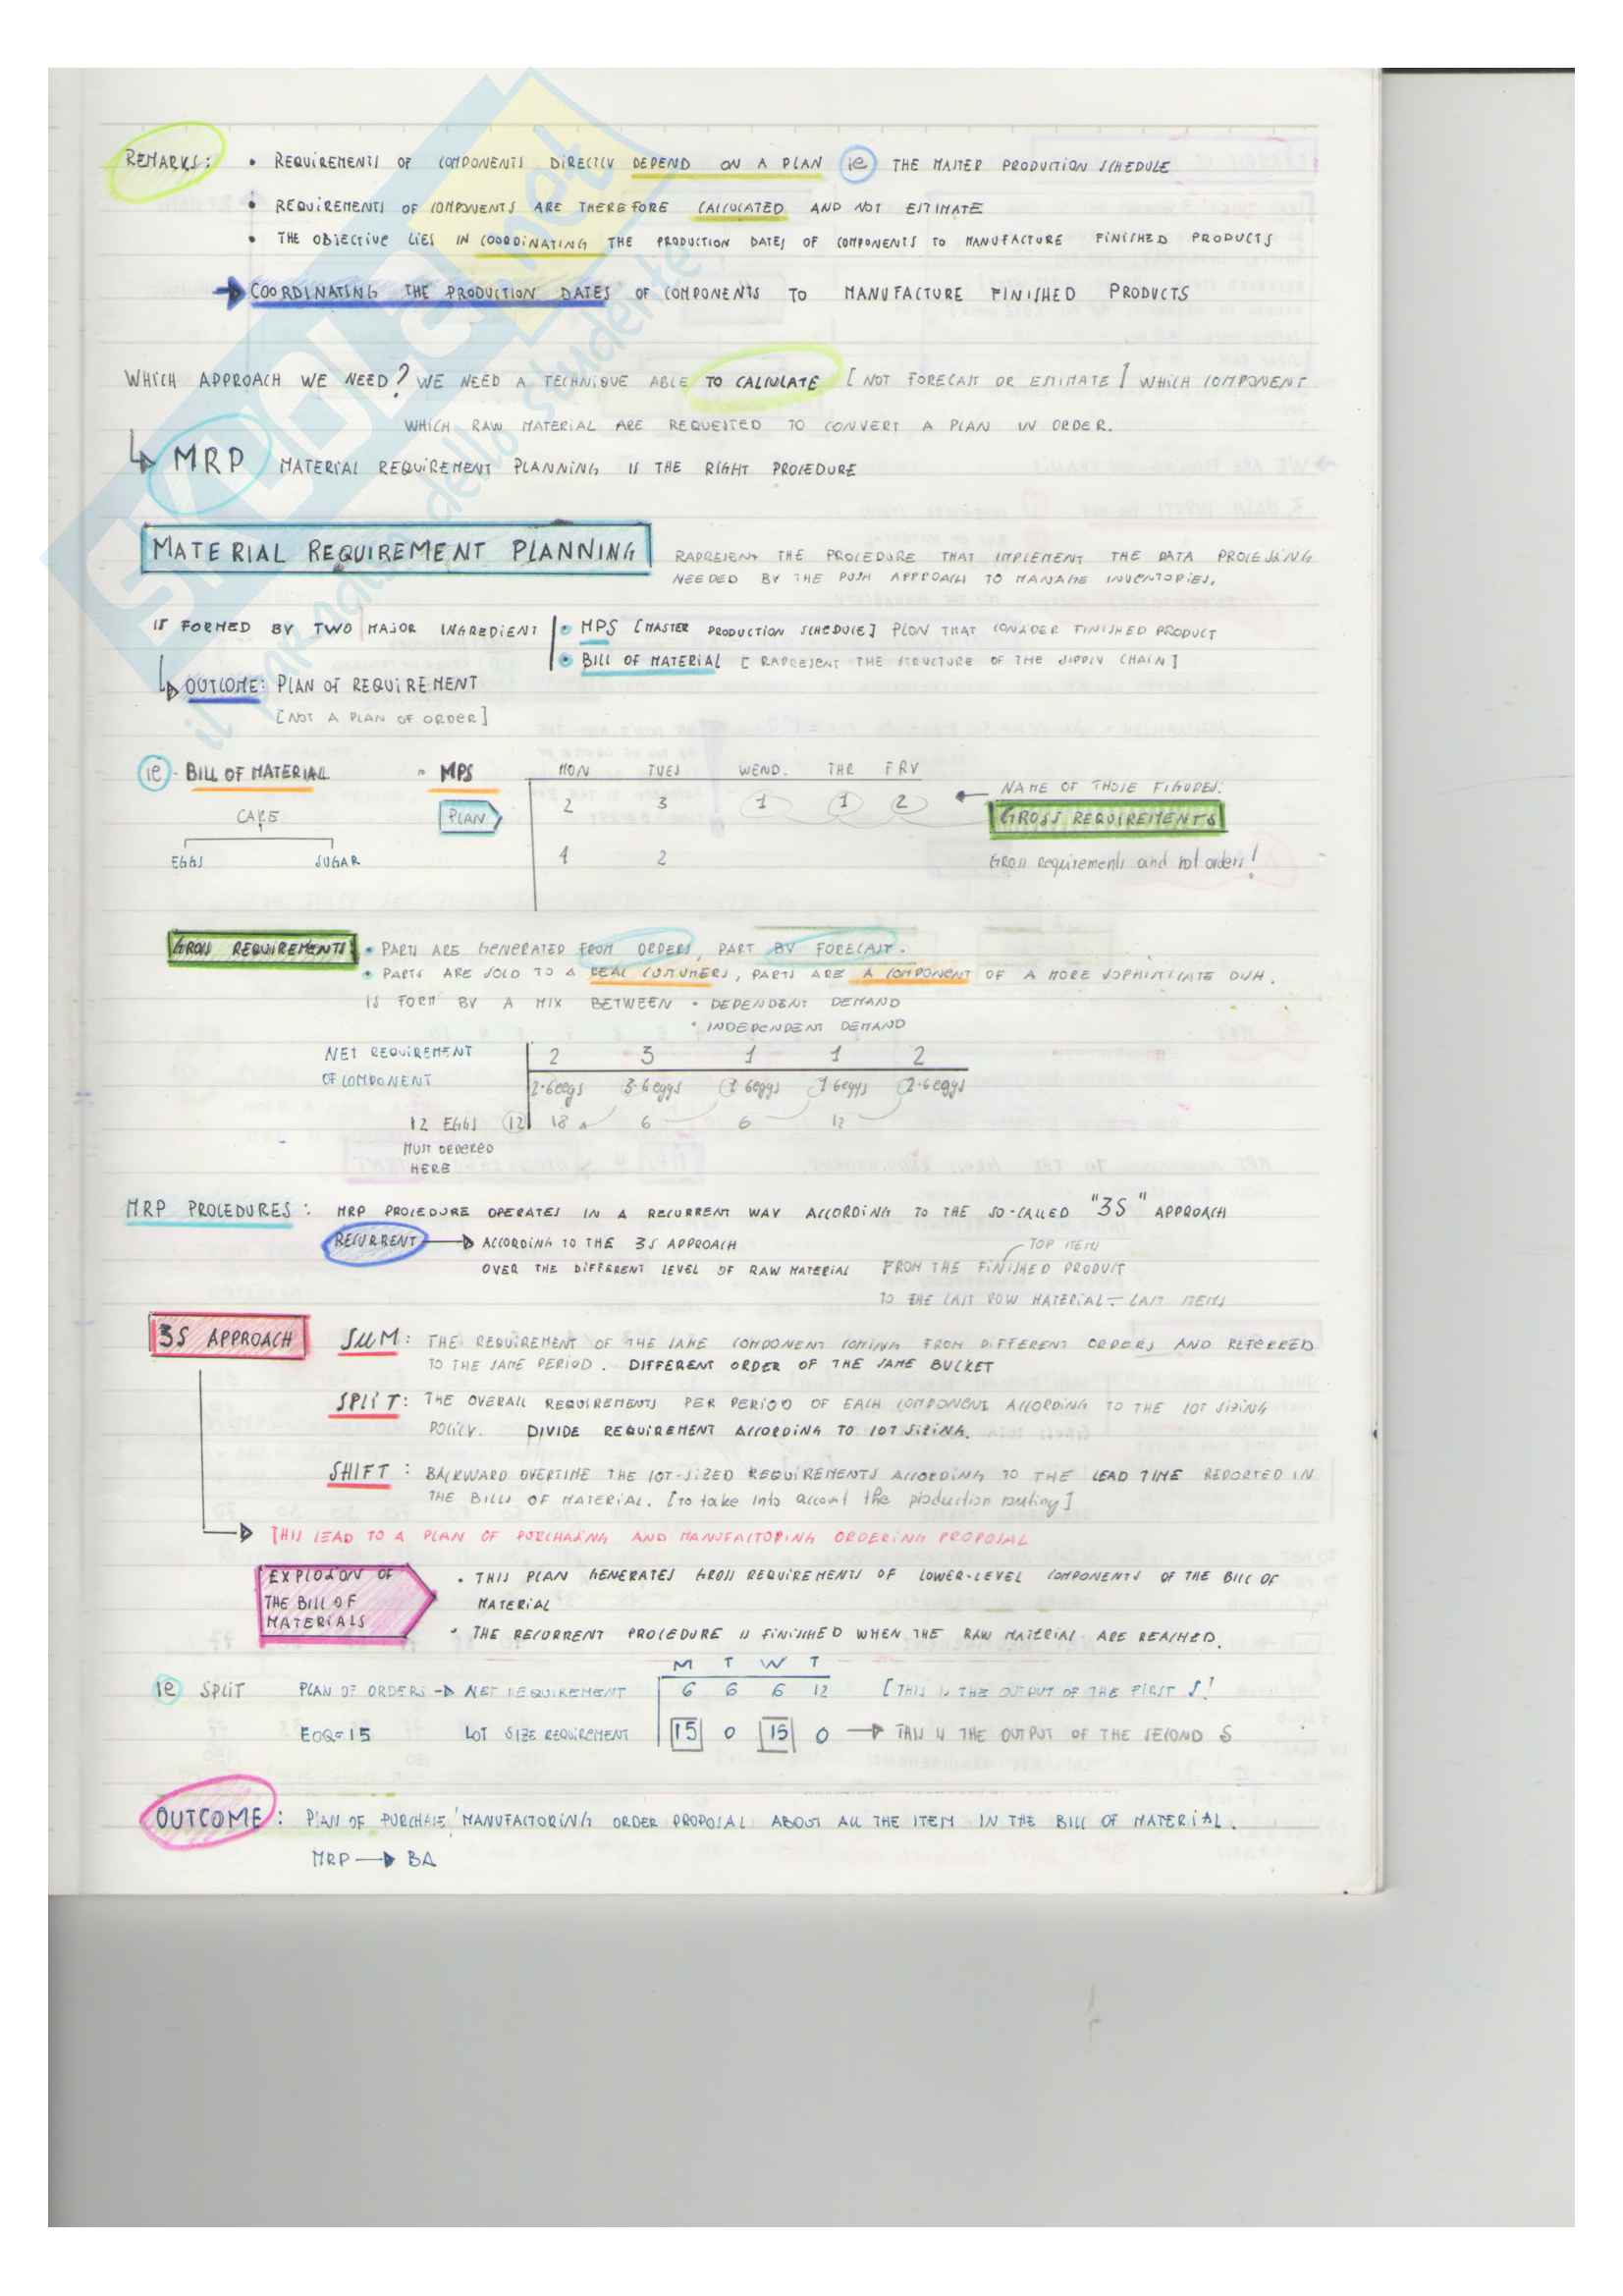 REMARKS: • REQUIREMENTS OF COMPONENTS DIRECTLY DEPEND ON A PLAN ie THE MASTER PRODUCTION SCHEDULE
• REQUIREMENTS OF COMPONENTS ARE THEREFORE CALCULATED AND NOT ESTIMATE
• THE OBJECTIVE LIES IN COORDINATING THE PRODUCTION DATES OF COMPONENTS TO MANUFACTURE FINISHED PRODUCTS
→ COORDINATING THE PRODUCTION DATES OF COMPONENTS TO MANUFACTURE FINISHED PRODUCTS
WHICH APPROACH WE NEED? WE NEED A TECHNIQUE ABLE TO CALCULATE [NOT FORECAST OR ESTIMATE] WHICH COMPONENT
WHICH RAW MATERIAL ARE REQUESTED TO CONVERT A PLAN IN ORDER.
↳ MRP MATERIAL REQUIREMENT PLANNING IS THE RIGHT PROCEDURE
MATERIAL REQUIREMENT PLANNING RAPRESENT THE PROCEDURE THAT IMPLEMENT THE DATA PROCESSING
NEEDED BY THE PUSH APPROACH TO MANAGE INVENTORIES.
IS FORMED BY TWO MAJOR INGREDIENT • MPS [MASTER PRODUCTION SCHEDULE] PLAN THAT CONSIDER FINISHED PRODUCT
• BILL OF MATERIAL [RAPRESENT THE STRUCTURE OF THE SUPPLY CHAIN]
↳ OUTCOME: PLAN OF REQUIREMENT
[NOT A PLAN OF ORDER]
ie • BILL OF MATERIAL • MPS MON TUES WEND. THR FRY
NAME OF THOSE FIGURES:
CAKE PLAN 2 3 1 1 2 ← GROSS REQUIREMENTS
EGGS SUGAR 1 2 Gross requirements and not orders!
GROSS REQUIREMENTS • PARTS ARE GENERATED FROM ORDERS, PART BY FORECAST.
• PARTS ARE SOLD TO A REAL COSTUMERS, PARTS ARE A COMPONENT OF A MORE SOPHISTICATE
IS FORM BY A MIX BETWEEN • DEPENDENT DEMAND
• INDEPENDENT DEMAND
NET REQUIREMENT 2 3 1 1 2
OF COMPONENT 2·6eegs 3·6eggs 1·6eggs 1·6eggs 2·6eggs
12 EGGS 12 18 6 6 12
MUST ORDERED
HERE
MRP PROCEDURES: MRP PROCEDURE OPERATES IN A RECURRENT WAY ACCORDING TO THE SO-CALLED "3S" APPROACH
RECURRENT → ACCORDING TO THE 3S APPROACH TOP ITEM
OVER THE DIFFERENT LEVEL OF RAW MATERIAL FROM THE FINISHED PRODUCT
TO THE LAST ROW MATERIAL - LAST ITEMS
3S APPROACH SUM: THE REQUIREMENT OF THE SAME COMPONENT COMING FROM DIFFERENT ORDERS AND REFERRED
TO THE SAME PERIOD. DIFFERENT ORDER OF THE SAME BUCKET
SPLIT: THE OVERALL REQUIREMENTS PER PERIOD OF EACH COMPONENT ACCORDING TO THE LOT SIZING
POLICY. DIVIDE REQUIREMENT ACCORDING TO LOT SIZING.
SHIFT: BACKWARD OVERTIME THE LOT-SIZED REQUIREMENTS ACCORDING TO THE LEAD TIME REPORTED IN
THE BILLS OF MATERIAL. [To take into account the production routing]
→ THIS LEAD TO A PLAN OF PURCHASING AND MANUFACTORING ORDERING PROPOSAL
EXPLOSION OF • THIS PLAN GENERATES GROSS REQUIREMENTS OF LOWER-LEVEL COMPONENTS OF THE BILL OF
THE BILL OF MATERIAL
MATERIALS • THE RECURRENT PROCEDURE IS FINISHED WHEN THE RAW MATERIAL ARE REACHED.
M T W T
ie SPLIT PLAN OF ORDERS → NET REQUIREMENT 6 6 6 12 [THIS IS THE OUTPUT OF THE FIRST S!
EOQ=15 LOT SIZE REQUIREMENT 15 0 15 0 → THIS IS THE OUTPUT OF THE SECOND S
OUTCOME: PLAN OF PURCHASE/MANUFACTORING ORDER PROPOSAL ABOUT ALL THE ITEM IN THE BILL OF MATERIAL.
MRP → BA